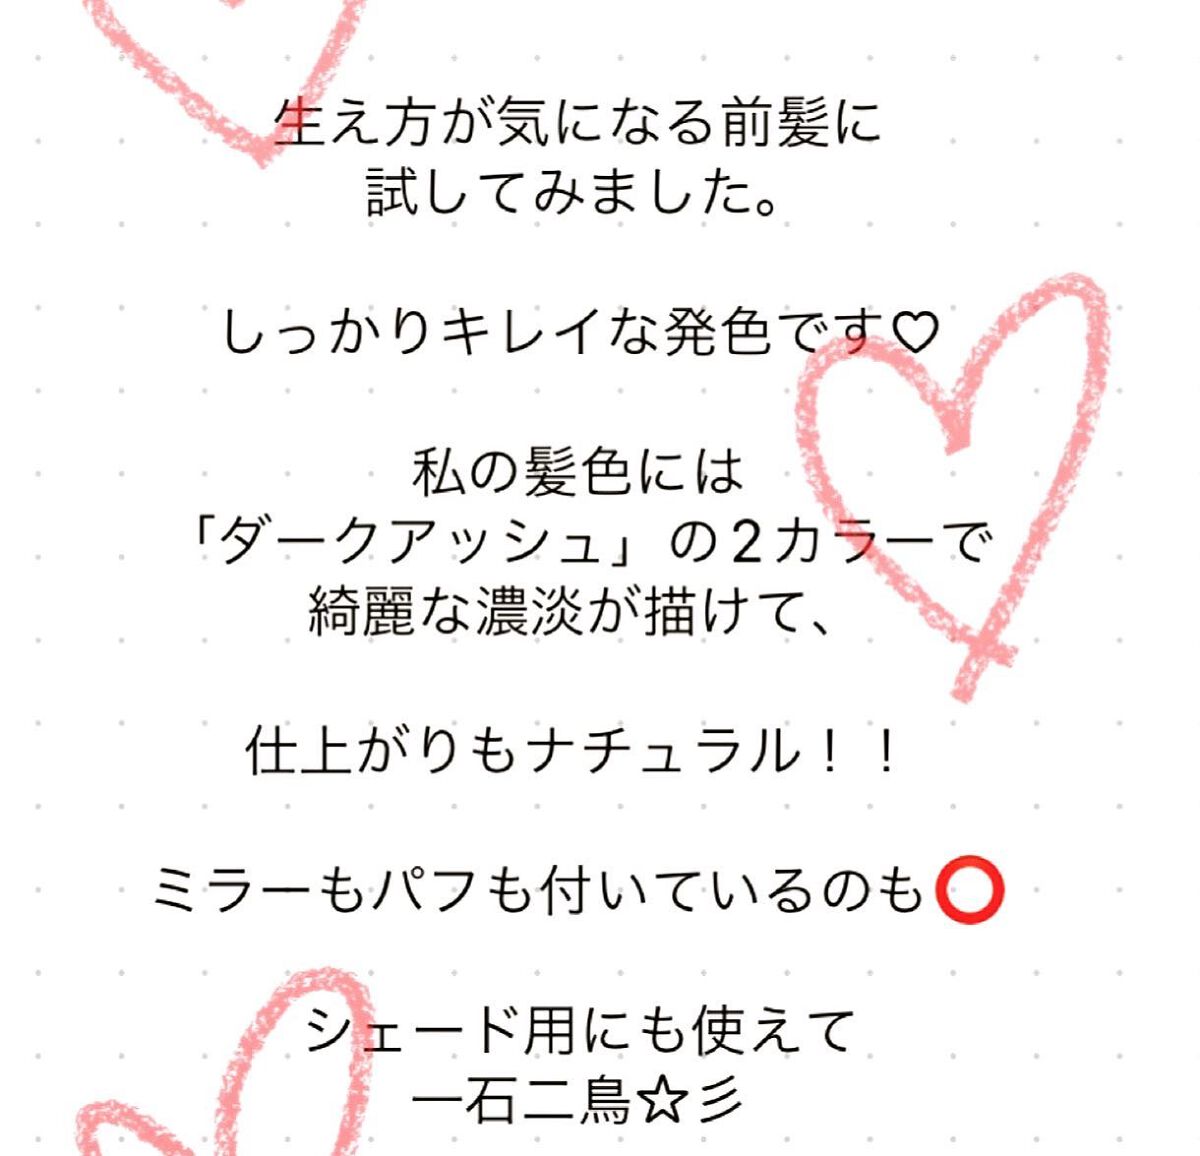 生え方が気になる前髪に
試してみました。
しっかりキレイな発色です♡
私の髪色には
「ダークアッシュ」の2カラーで
綺麗な濃淡が描けて、
仕上がりもナチュラル！！
ミラーもパフも付いているのも⭕
シェード用にも使えて
一石二鳥☆彡